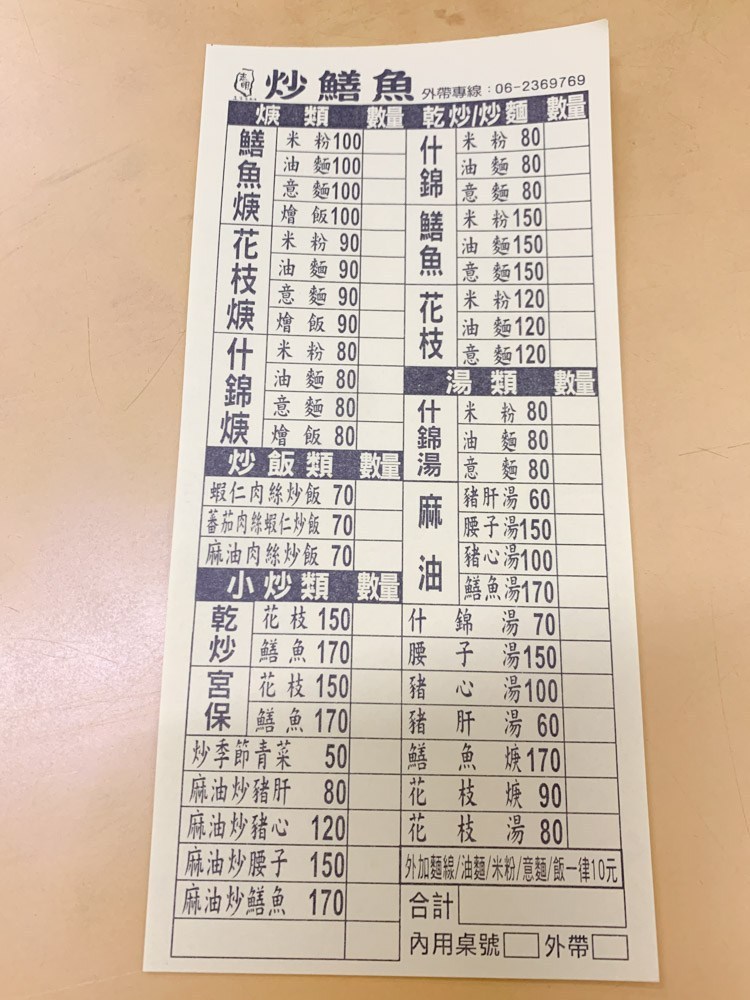 炒鱔魚 外帶專線：06-2369769
焿類 數量
鱔魚焿
米粉100
油麵100
意麵100
燴飯100
花枝焿
米粉 90
油麵 90
意麵 90
燴飯 90
什錦焿
米粉 80
油麵 80
意麵 80
燴飯 80
炒飯類 數量
蝦仁肉絲炒飯 70
蕃茄肉絲蝦仁炒飯 70
麻油肉絲炒飯 70
小炒類 數量
乾炒
花枝 150
鱔魚 170
宮保
花枝 150
鱔魚 170
炒季節青菜 50
麻油炒豬肝 80
麻油炒豬心 120
麻油炒腰子 150
麻油炒鱔魚 170
乾炒/炒麵 數量
什錦
米粉 80
油麵 80
意麵 80
鱔魚
米粉150
油麵150
意麵150
花枝
米粉120
油麵120
意麵120
湯類 數量
什錦湯
米粉 80
油麵 80
意麵 80
麻油
豬肝湯 60
腰子湯150
豬心湯100
鱔魚湯170
什錦湯 70
腰子湯150
豬心湯100
豬肝湯 60
鱔魚焿170
花枝焿 90
花枝湯 80
外加麵線/油麵/米粉/意麵/飯一律10元
合計
內用桌號 外帶